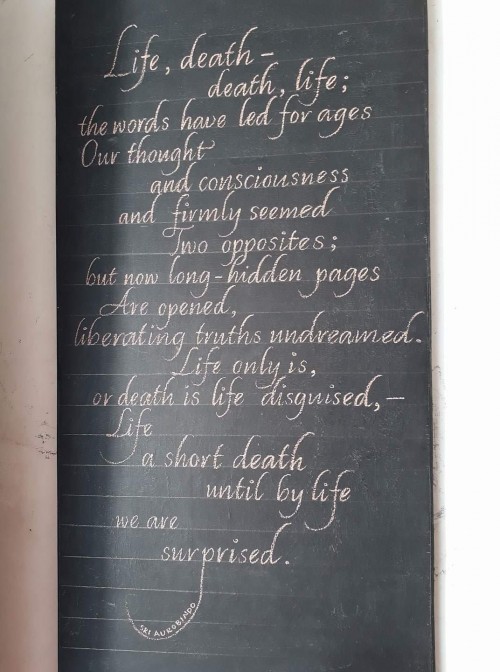 Life, death –
death, life;
the words have led for ages
Our thought
and consciousness
and firmly seemed
Two opposites;
but now long-hidden pages
Are opened,
liberating truths undreamed.
Life only is,
or death is life disguised, –
Life
a short death
until by life
we are
surprised.
SRI AUROBINDO